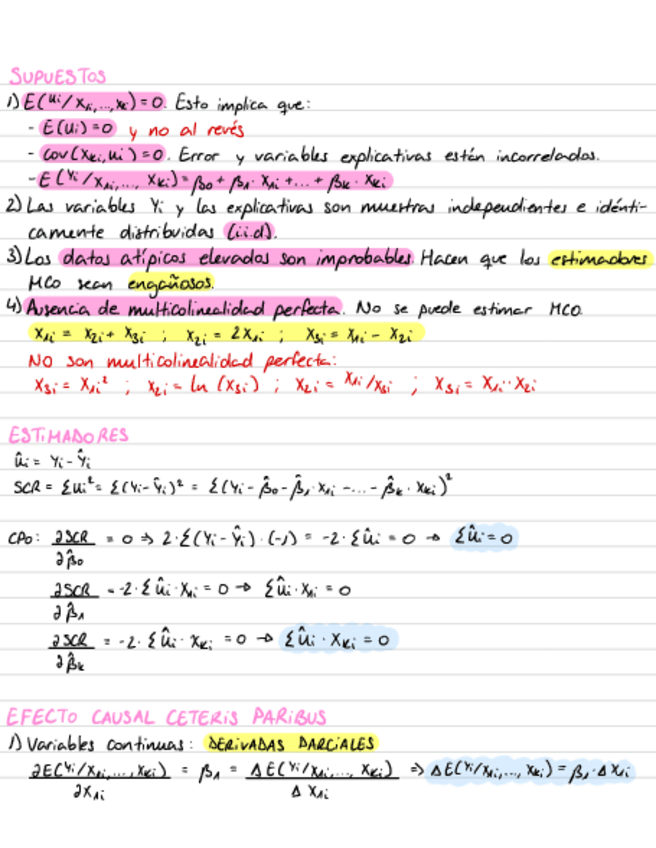 SUPUESTOS
1) E(ui/x1i,...,xk)=0. Esto implica que:
- E(ui)=0 y no al revés
- cov(xki,ui)=0. Error y variables explicativas están incorrelados.
- E(Yi/x1i,..., xki)=β0+β1·x1i+...+βk·xki
2) Las variables Yi y las explicativas son muestras independientes e idénti-
camente distribuidas (i.i.d).
3) Los datos atípicos elevados son improbables. Hacen que los estimadores
MCO sean engañosos.
4) Ausencia de multicolinealidad perfecta. No se puede estimar MCO.
x1i = x2i + x3i ; x2i = 2x1i ; x3i = x1i - x2i
NO son multicolinealidad perfecta:
x3i = x1i² ; x2i = ln (x3i) ; x2i = x1i/x3i ; x3i = x1i·x2i
ESTIMADORES
ûi = Yi - Ŷi
SCR = Σui² = Σ(Yi-Ŷi)² = Σ(Yi - β̂0 - β̂1·x1i - ... - β̂k·xki)²
CPO: ∂SCR/∂β̂0 = 0 ⇒ 2·Σ(Yi-Ŷi)·(-1) = -2·Σûi = 0 → Σûi = 0
∂SCR/∂β̂1 = -2·Σûi·x1i = 0 → Σûi·x1i = 0
∂SCR/∂β̂k = -2·Σûi·xki = 0 → Σûi·xki = 0
EFECTO CAUSAL CETERIS PARIBUS
1) Variables continuas: DERIVADAS PARCIALES
∂E(Yi/x1i,...,xki)/∂x1i = β1 = ΔE(Yi/x1i,..., xki)/Δx1i ⇒ ΔE(Yi/x1i,..., xki) = β1·Δx1i